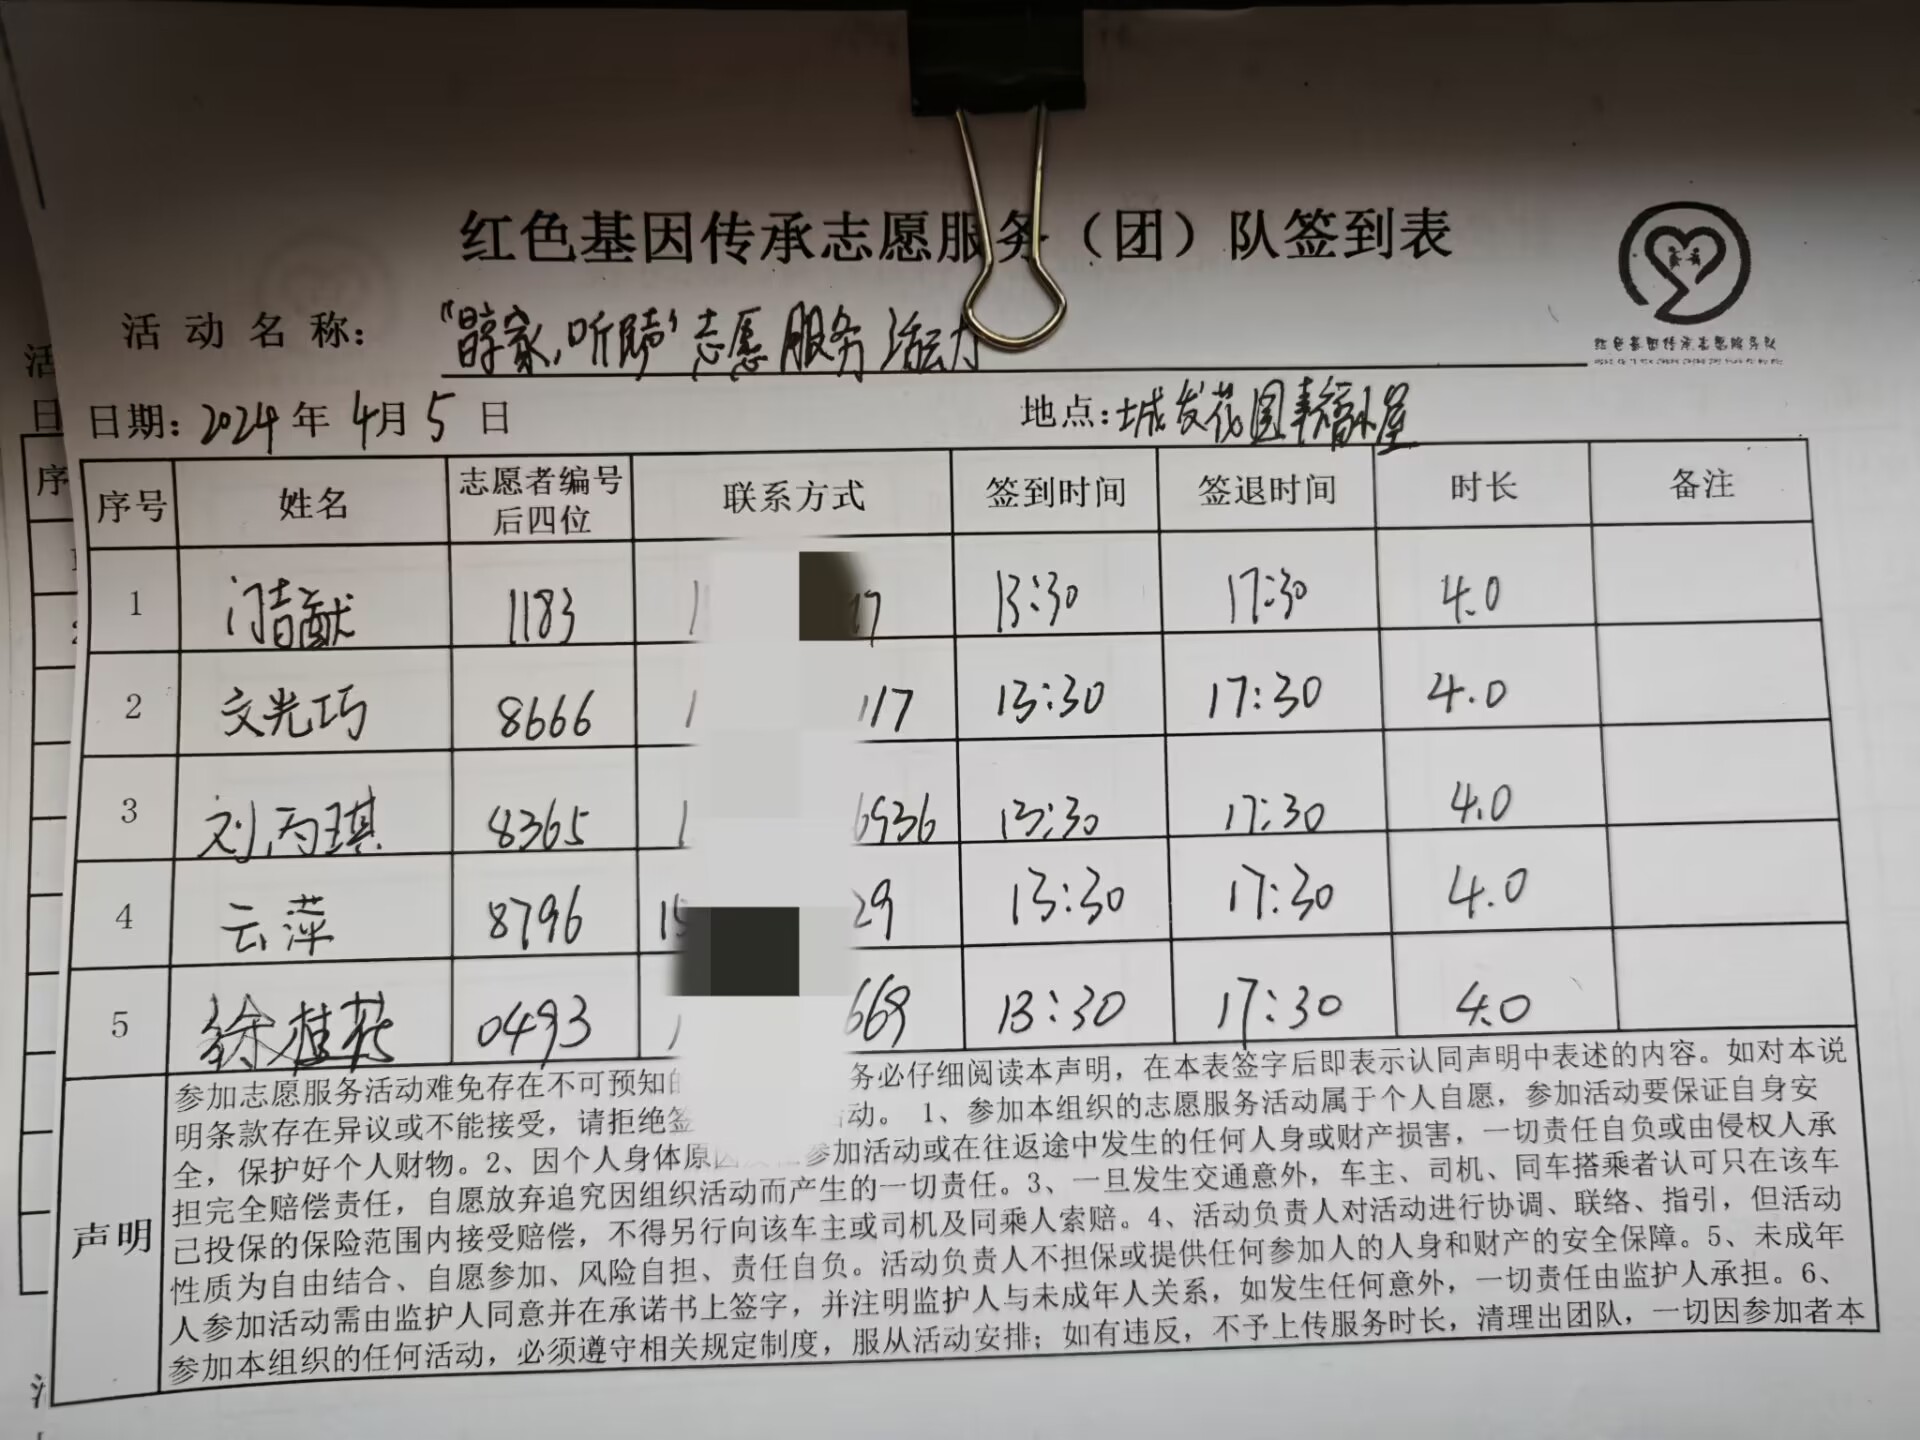 红色基因传承志愿服务（团）队签到表
红色基因传承志愿服务队
活动名称： 志愿服务活动
日期：2024年4月5日 地点：城发花园幸福小屋
序号 姓名 志愿者编号后四位 联系方式 签到时间 签退时间 时长 备注
1 1183 1 17 13:30 17:30 4.0
2 文光巧 8666 1 117 13:30 17:30 4.0
3 刘丙琪 8365 1 6936 13:30 17:30 4.0
4 云萍 8796 15 29 13:30 17:30 4.0
5 徐桂花 0493 1 669 13:30 17:30 4.0
声明
参加志愿服务活动难免存在不可预知的 务必仔细阅读本声明，在本表签字后即表示认同声明中表述的内容。如对本说
明条款存在异议或不能接受，请拒绝签 动。 1、参加本组织的志愿服务活动属于个人自愿，参加活动要保证自身安
全，保护好个人财物。2、因个人身体原因 参加活动或在往返途中发生的任何人身或财产损害，一切责任自负或由侵权人承
担完全赔偿责任，自愿放弃追究因组织活动而产生的一切责任。3、一旦发生交通意外，车主、司机、同车搭乘者认可只在该车
已投保的保险范围内接受赔偿，不得另行向该车主或司机及同乘人索赔。4、活动负责人对活动进行协调、联络、指引，但活动
性质为自由结合、自愿参加、风险自担、责任自负。活动负责人不担保或提供任何参加人的人身和财产的安全保障。5、未成年
人参加活动需由监护人同意并在承诺书上签字，并注明监护人与未成年人关系，如发生任何意外，一切责任由监护人承担。6、
参加本组织的任何活动，必须遵守相关规定制度，服从活动安排；如有违反，不予上传服务时长，清理出团队，一切因参加者本